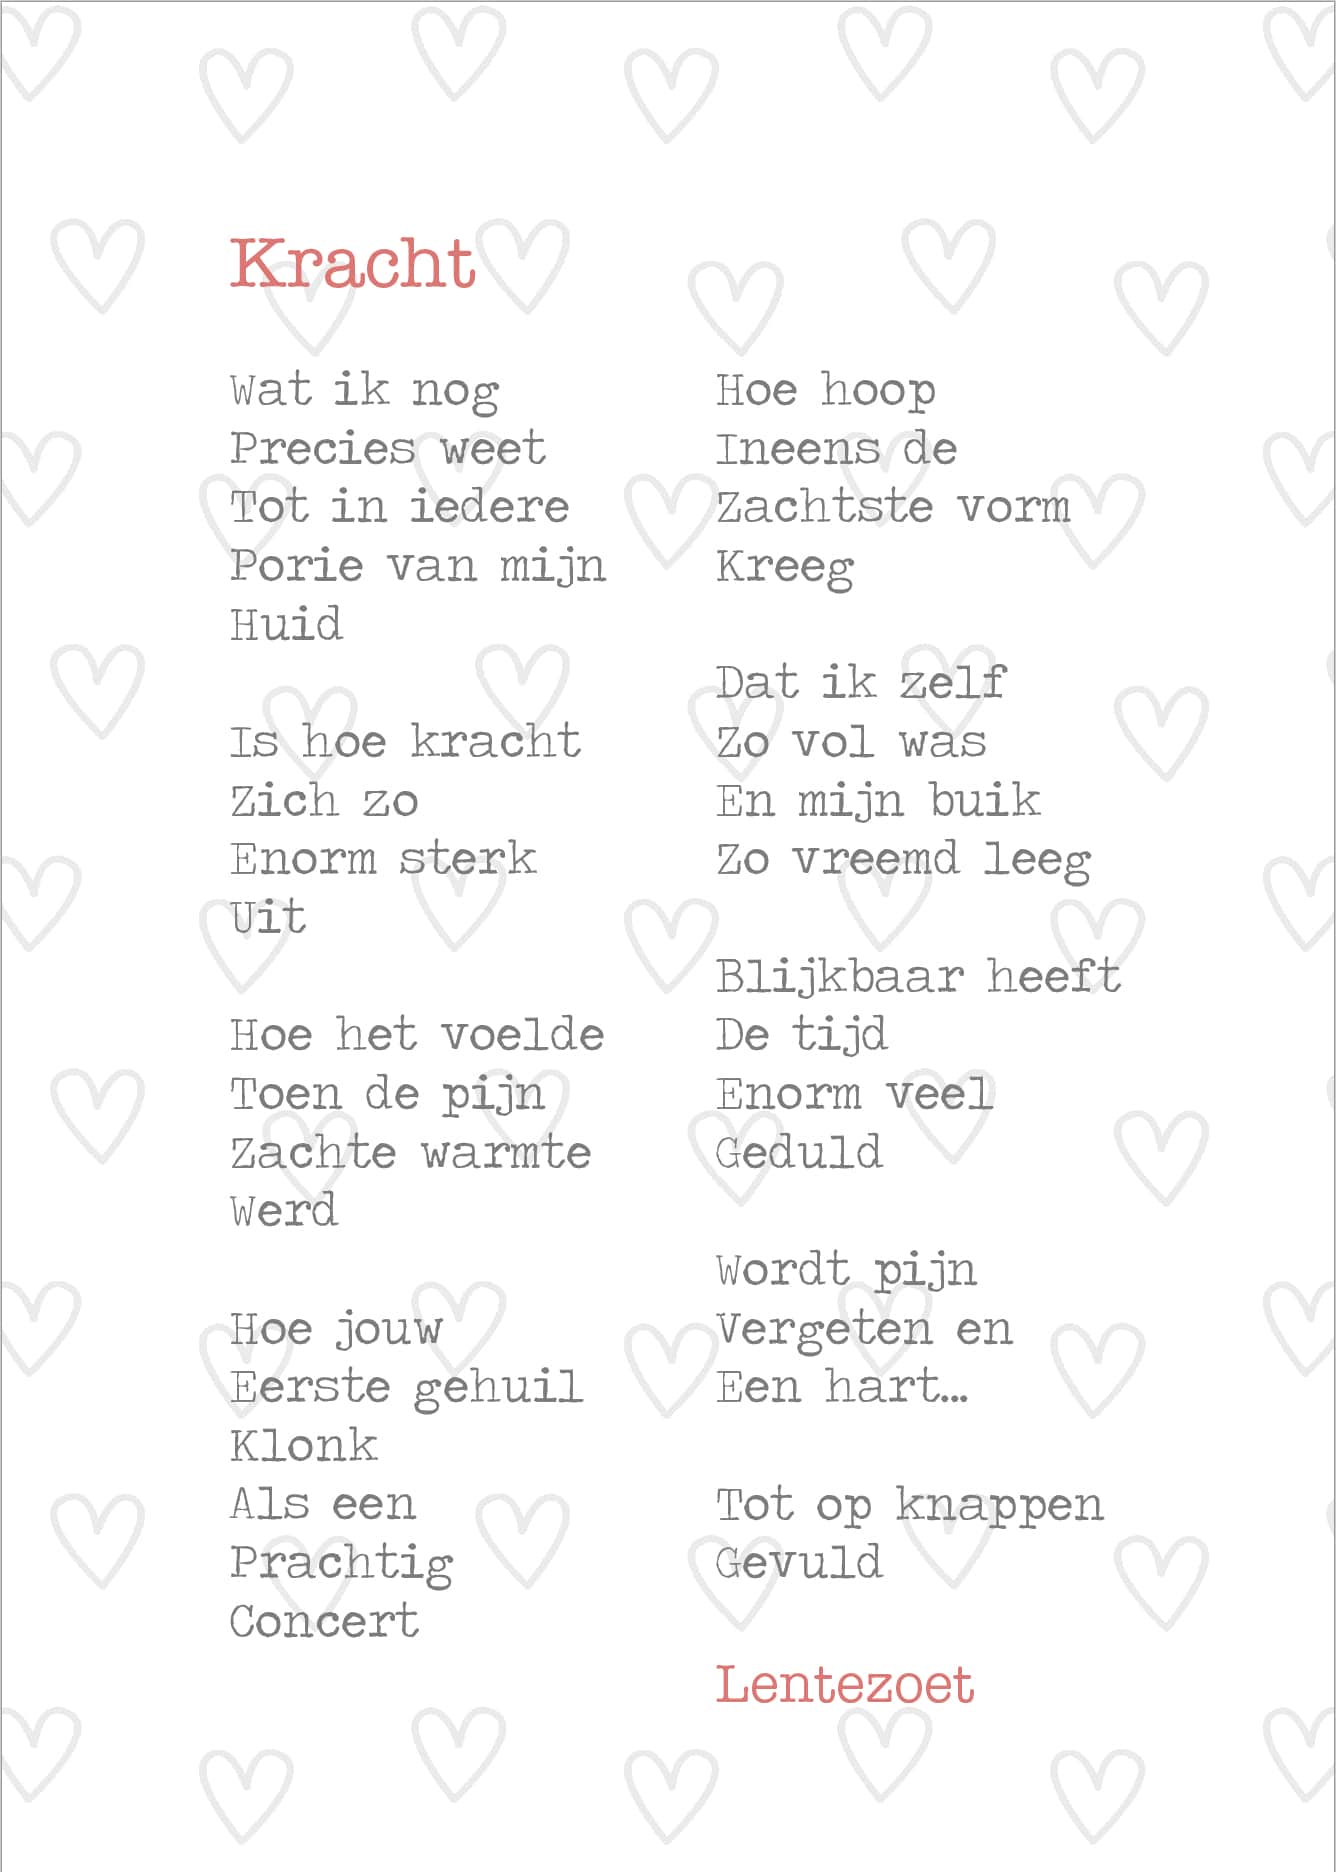 Kracht
Wat ik nog
Precies weet
Tot in iedere
Porie van mijn
Huid
Is hoe kracht
Zich zo
Enorm sterk
Uit
Hoe het voelde
Toen de pijn
Zachte warmte
Werd
Hoe jouw
Eerste gehuil
Klonk
Als een
Prachtig
Concert
Hoe hoop
Ineens de
Zachtste vorm
Kreeg
Dat ik zelf
Zo vol was
En mijn buik
Zo vreemd leeg
Blijkbaar heeft
De tijd
Enorm veel
Geduld
Wordt pijn
Vergeten en
Een hart...
Tot op knappen
Gevuld
Lentezoet